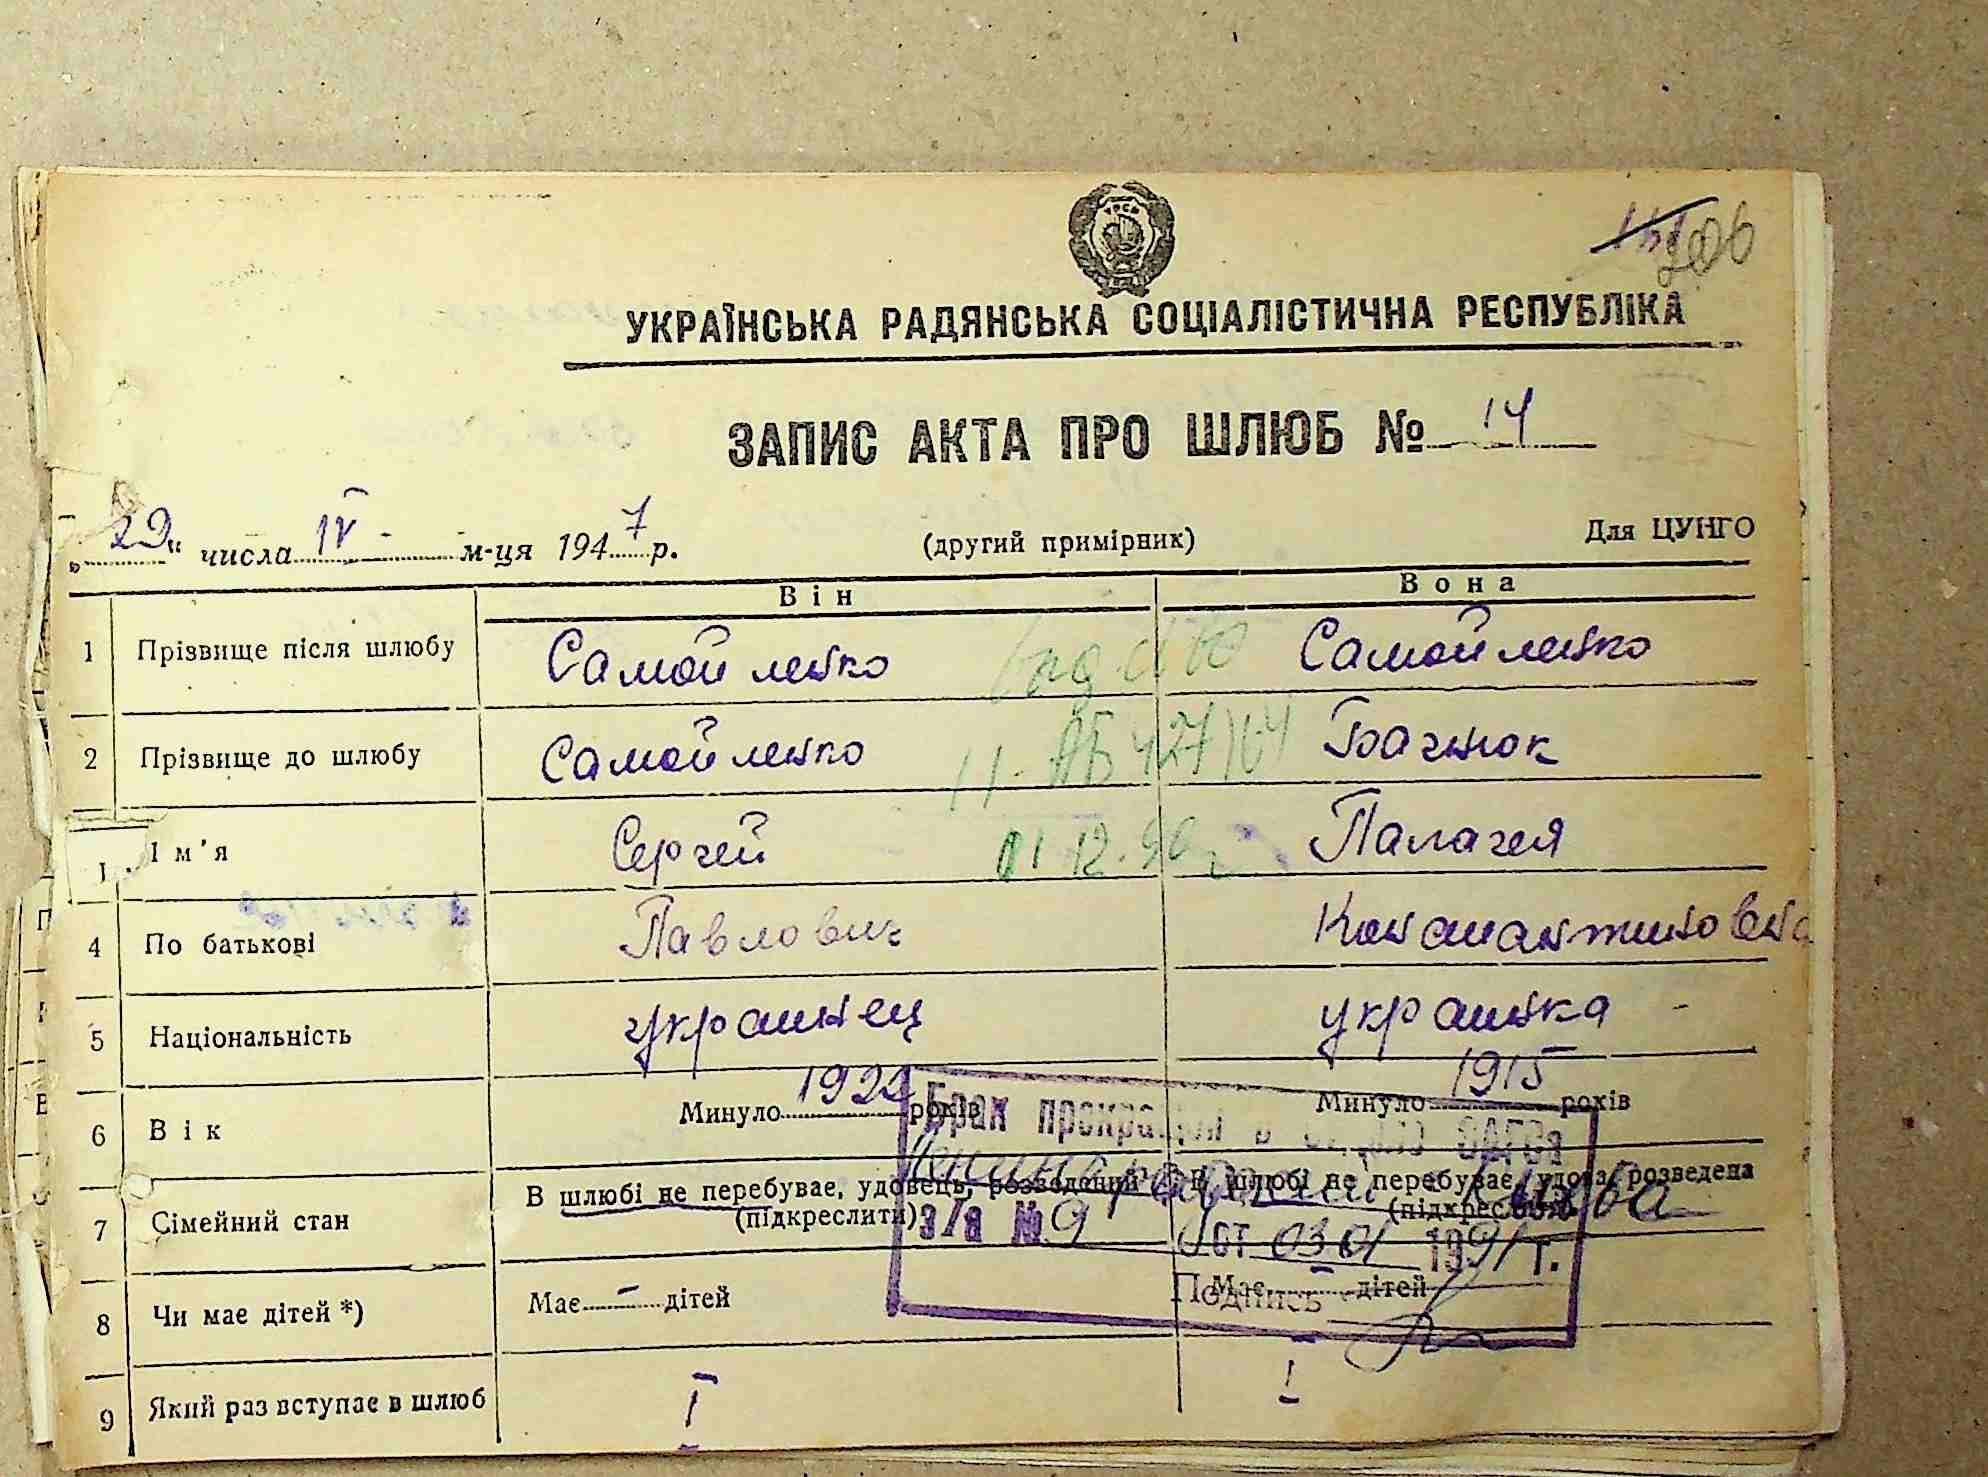 206
УКРАЇНСЬКА РАДЯНСЬКА СОЦІАЛІСТИЧНА РЕСПУБЛІКА
ЗАПИС АКТА ПРО ШЛЮБ № 14
„22“ числа IV м-ця 1947 р. (другий примірник) Для ЦУНГО
Він Вона
1 Прізвище після шлюбу Самойленко Самойленко
2 Прізвище до шлюбу Самойленко
11-АБ 427164
Ім'я Сергей Палагея
01.12.90г
4 По батькові Павлович Константиновна
5 Національність украинец украинка
6 Вік Минуло 1922 років Минуло 1915 років
Брак прекращен в отделе ЗАГСа
Ленинградский Киева
7 Сімейний стан В шлюбі не перебуває, удовець, розведений В шлюбі не перебуває, удова, розведена
(підкреслити) (підкреслити)
з/а № 9 от 03 01 1991 г.
8 Чи має дітей *) Має - дітей Має - дітей
Подпись
9 Який раз вступає в шлюб I I